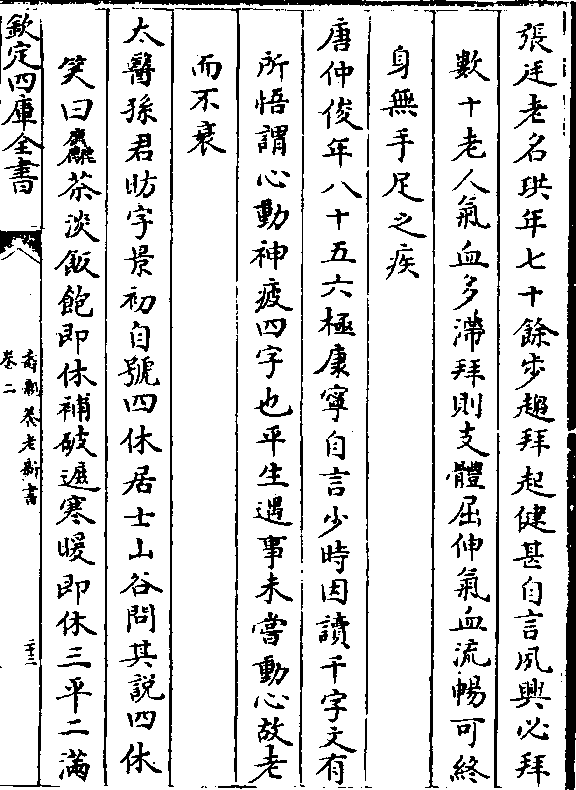 張廷老名珙年七十餘步趨拜起健甚自言夙興必拜
數十老人氣血多滯拜則支體屈伸氣血流暢可終
身無手足之疾
唐仲俊年八十五六極康寧自言少時因讀千字文有
所悟謂心動神疲四字也平生遇事未嘗動心故老
而不衰
太醫孫君昉字景初自號四休居士山谷問其説四休
笑曰麤茶淡飯飽即休補破遮寒暖即休三平二滿
欽定四庫全書
壽親養老新書
卷二
二十三